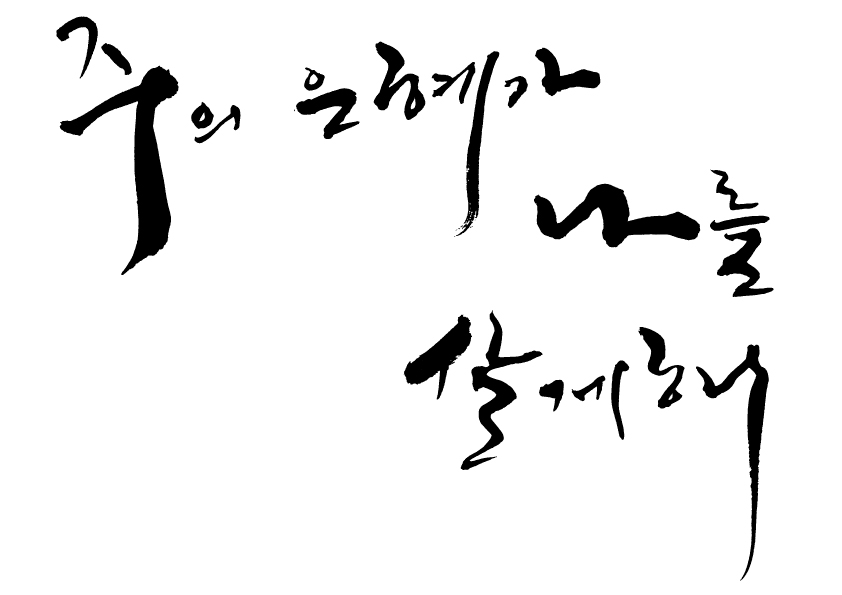 주의 은혜가
나를
살게해